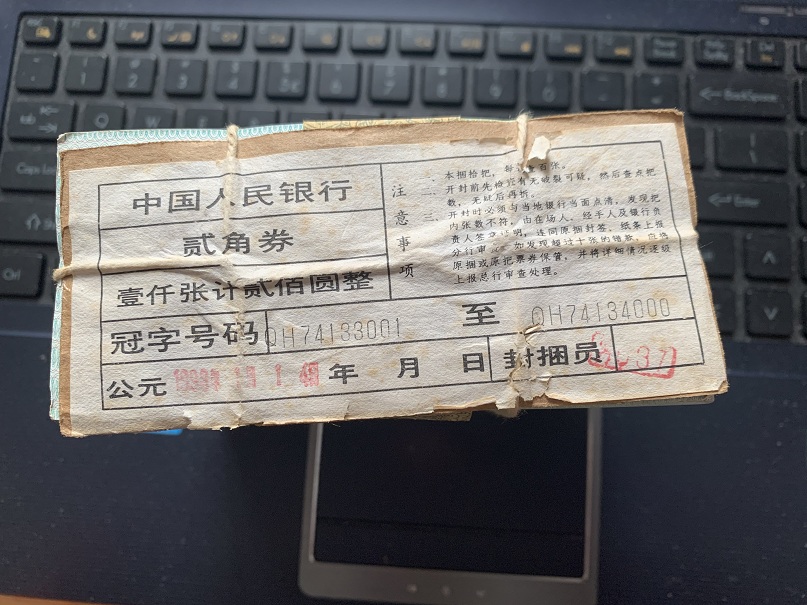 中国人民银行
贰角券
壹仟张计贰佰圆整
冠字号码 QH74133001 至 QH74134000
公元 年 月 日 封捆员
注意事项
一、本捆拾把，每 百张。
二、开封前先检还有无破裂可疑，然后查点把
数，无讹后再拆。
三、开封时必须与当地银行当面点清，发现把
内张数不符，由在场人、经手人及银行负
责人签 明，连同原捆封签、纸条上报
分行审 如发现超过十张的错款，应将
原捆或原把票券保管，并将详细情况逐级
上报总行审查处理。
BackSpace
Enter
Shift
Ctrl
Caps Lo